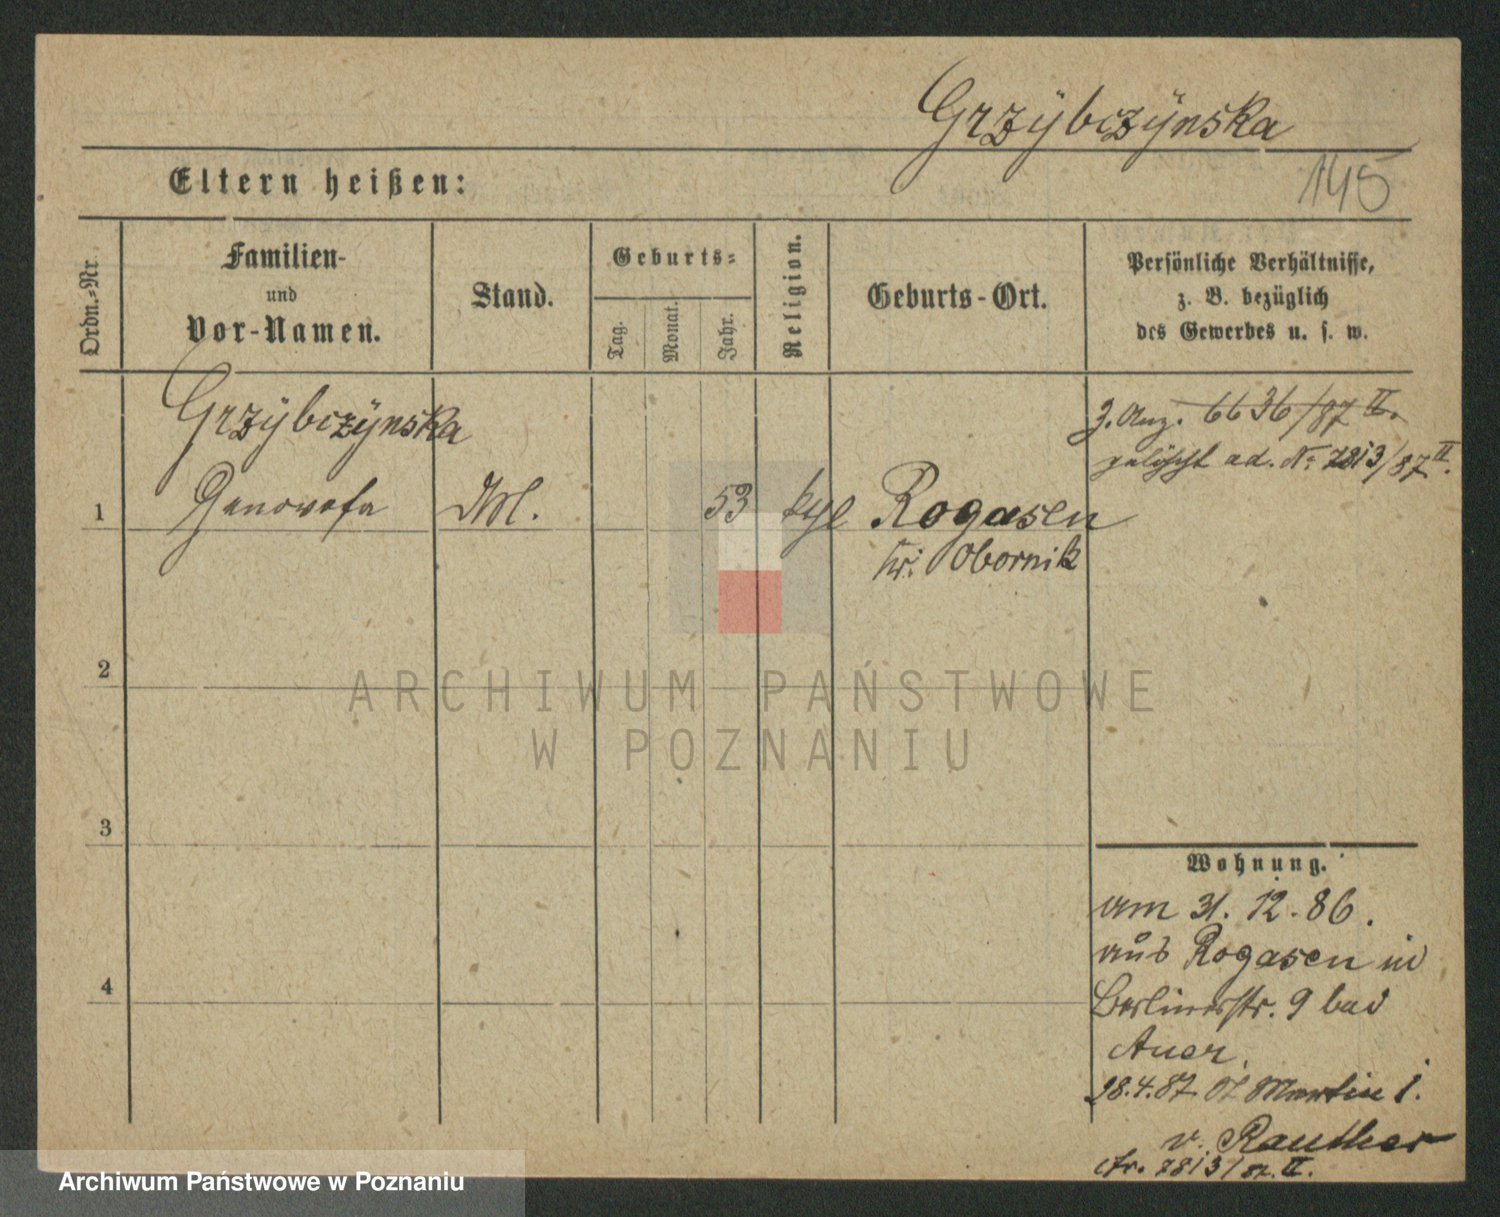 Grzÿbczÿnska
145
Eltern heißen:
Ordn.-Nr.
Familien-
und
Vor-Namen.
Stand.
Geburts-
Tag.
Monat.
Jahr.
Religion.
Geburts-Ort.
Persönliche Verhältnisse,
z. B. bezüglich
des Gewerbes u. s. w.
Grzÿbczÿnska
6636/87 II.
gelöscht ad. No 7813/87 II.
1 Genowefa 53 Rogasen
Kr. Obornik
2
3
4
Wohnung.
am 31. 12. 86.
aus Rogasen in
Berlinerstr. 9 bei
Auer.
28.4.87. St Martin 1.
v. Rauther
Nr. 7813/87. II.
ARCHIWUM PAŃSTWOWE
W POZNANIU
Archiwum Państwowe w Poznaniu